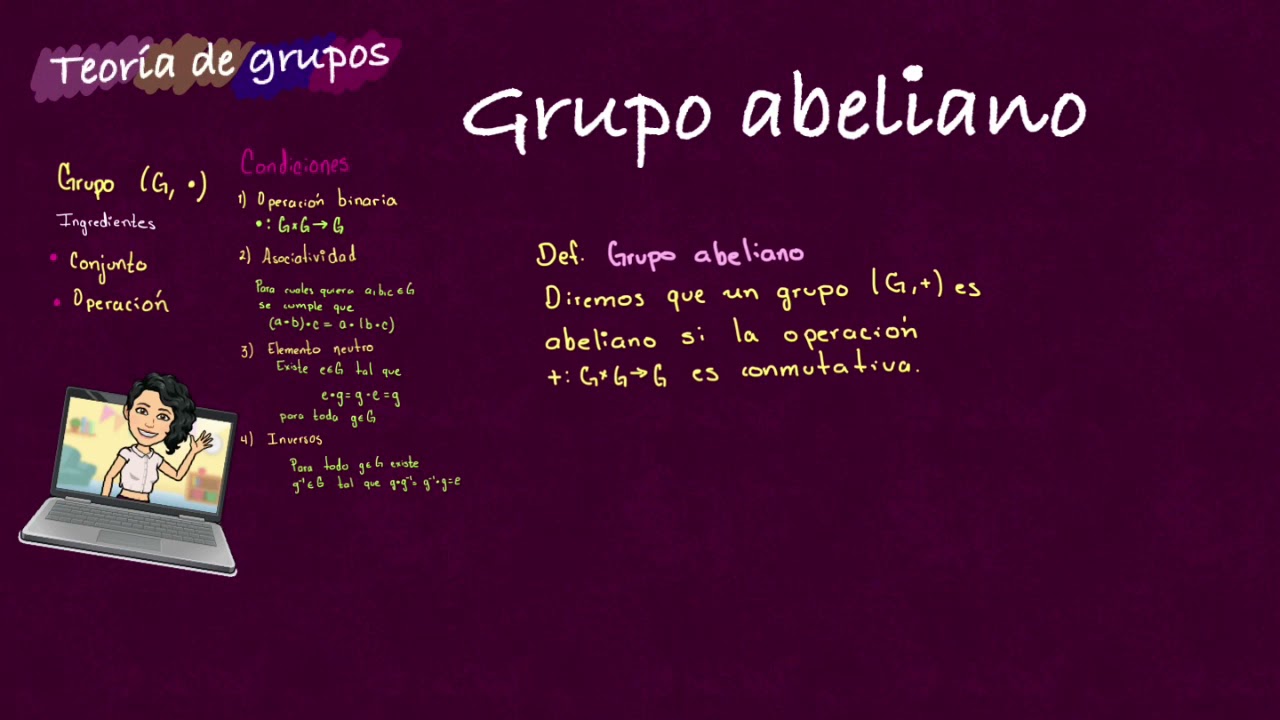 Teoría de grupos
Grupo abeliano
Grupo (G, •)
Ingredientes
• Conjunto
• Operación
Condiciones
1) Operación binaria
•: G×G→G
2) Asociatividad
Para cuales quiera a,b,c∈G
se cumple que
(a•b)•c = a•(b•c)
3) Elemento neutro
Existe e∈G tal que
e•g=g•e=g
para toda g∈G
4) Inversos
Para todo g∈G existe
g⁻¹∈G tal que g•g⁻¹=g⁻¹•g=e
Def. Grupo abeliano
Diremos que un grupo (G,+) es
abeliano si la operación
+: G×G→G es conmutativa.